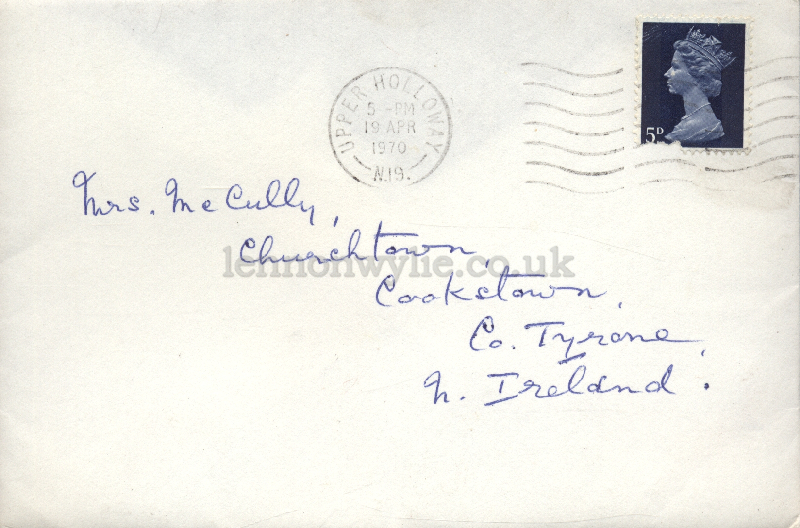 UPPER HOLLOWAY
5 - PM
19 APR
1970
N.19.
5D
Mrs. McCully,
Churchtown,
lennonwylie.co.uk
Cookstown,
Co. Tyrone,
N. Ireland.